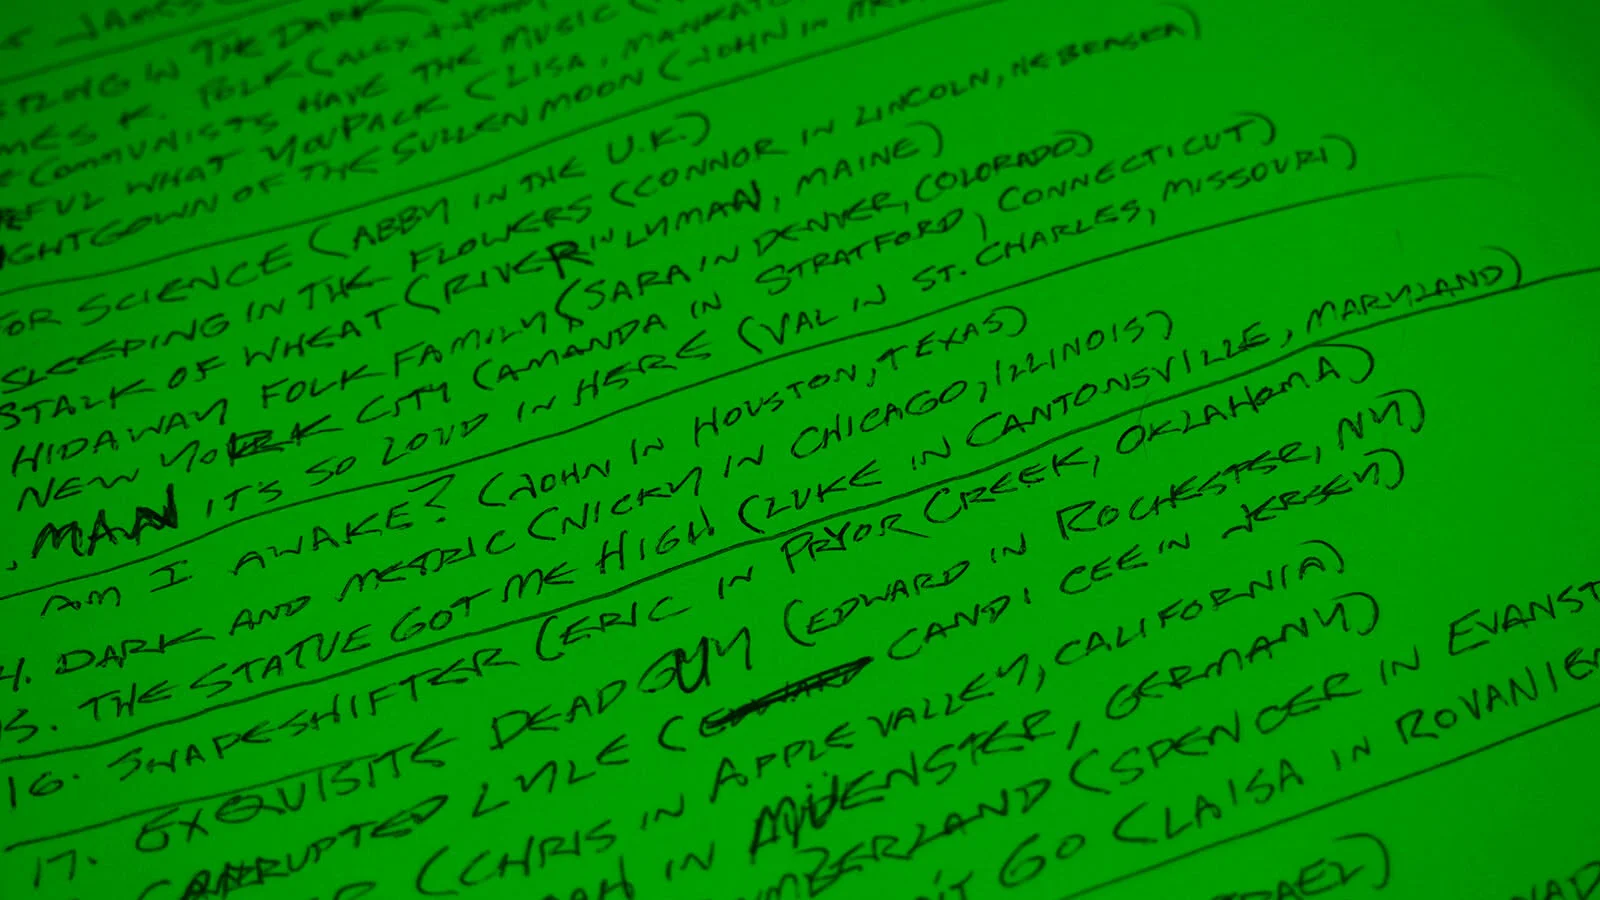 JAMES
IN THE DARK
JAMES K. POLK (ALEX +
COMMUNISTS HAVE THE MUSIC
WHAT YOU PACK (LISA, MANKATO
NIGHTGOWN OF THE SULLEN MOON (JOHN IN
FOR SCIENCE (ABBY IN THE U.K.)
SLEEPING IN THE FLOWERS (CONNOR IN LINCOLN, NEBRASKA)
STALK OF WHEAT (RIVER IN LYMAN, MAINE)
HIDAWAY FOLK FAMILY (SARA IN DENVER, COLORADO)
NEW YORK CITY (AMANDA IN STRATFORD, CONNECTICUT)
. MAN IT'S SO LOUD IN HERE (VAL IN ST. CHARLES, MISSOURI)
AM I AWAKE? (JOHN IN HOUSTON, TEXAS)
4. DARK AND METRIC (NICKY IN CHICAGO, ILLINOIS)
15. THE STATUE GOT ME HIGH (LUKE IN CANTONSVILLE, MARYLAND)
16. SHAPESHIFTER (ERIC IN PRYOR CREEK, OKLAHOMA)
17. EXQUISITE DEAD GUY (EDWARD IN ROCHESTER, NY)
CORRUPTED LYLE (EDWARD CANDI CEE IN JERSEY)
(CHRIS IN APPLE VALLEY, CALIFORNIA)
IN MUENSTER, GERMANY)
(SPENCER IN EVANST
GO (LAISA IN ROVANIE